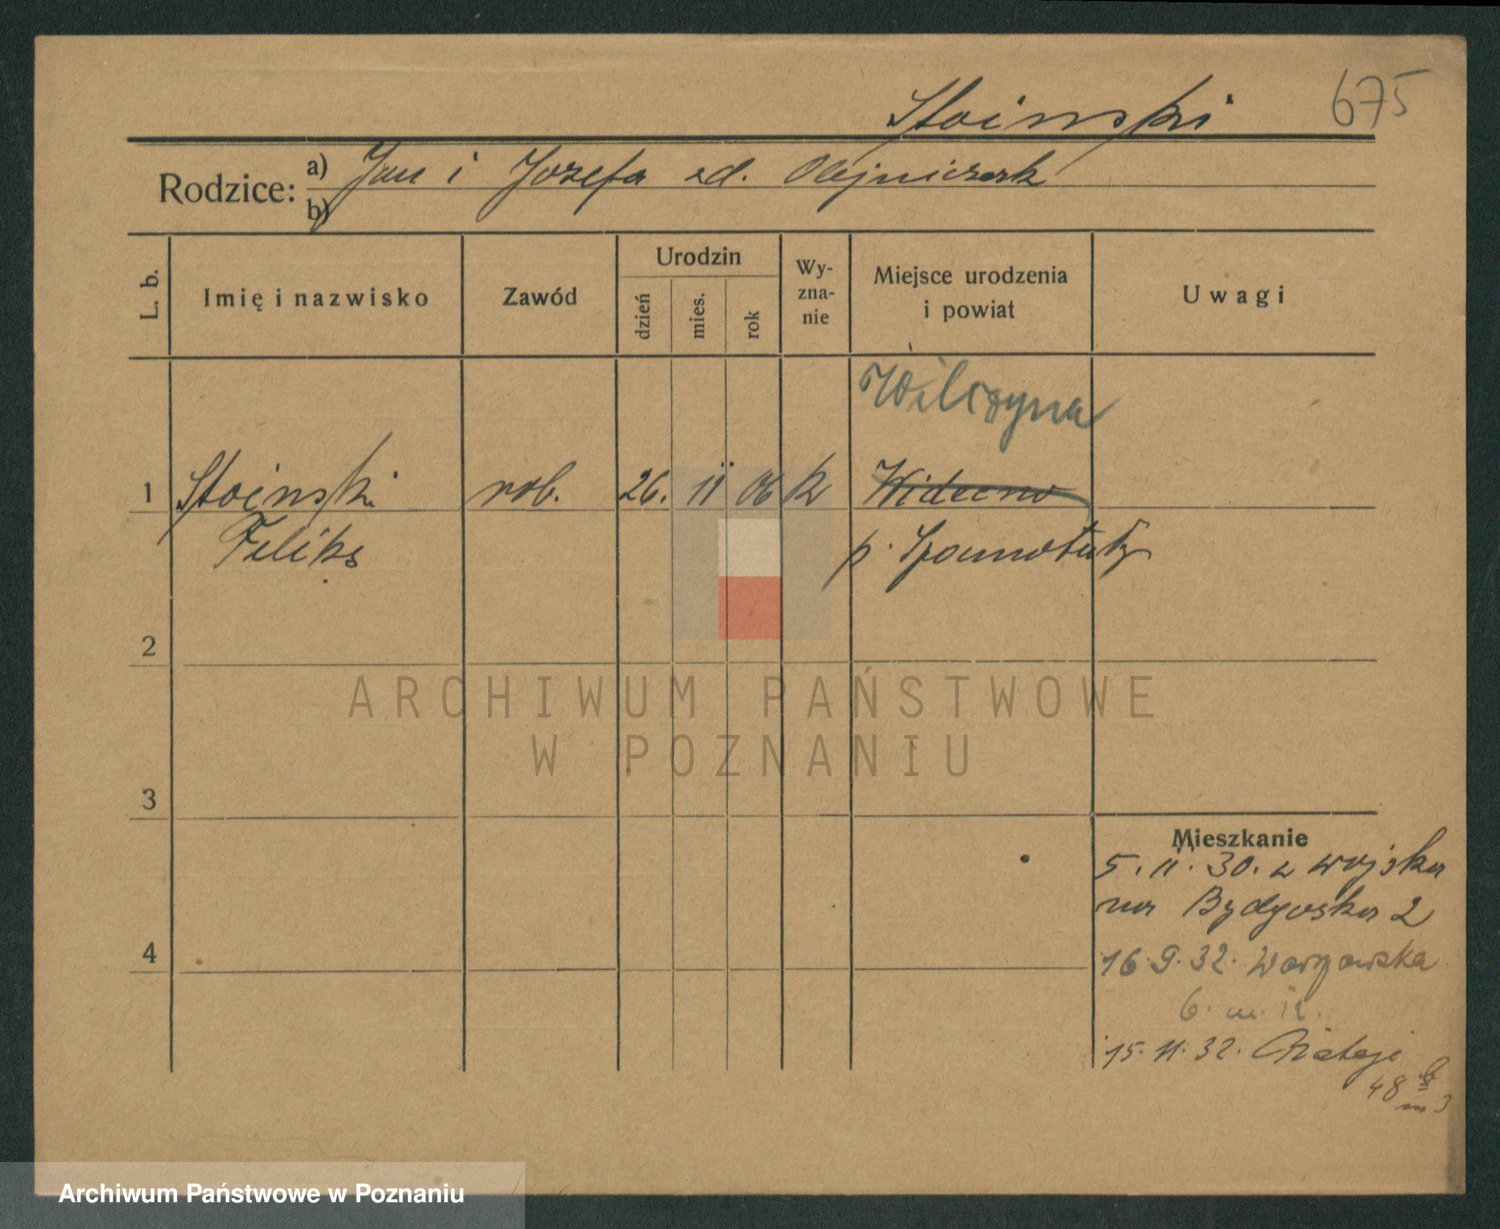 Stoinski
675
Rodzice:
a) Jan i Jozefa zd. Olejniczak
b)
L. b.
Imię i nazwisko
Zawód
Urodzin
dzień
mies.
rok
Wy-
zna-
nie
Miejsce urodzenia
i powiat
Uwagi
Wilczyna
1 Stoinski rob. 26. 11 06 k
Feliks
p. Szamotuły
2
ARCHIWUM PAŃSTWOWE
W POZNANIU
3
Mieszkanie
5. 11. 30. z wojska
na Bydgoska 2
4
16. 9. 32.
6. m. 12.
15. 11. 32. Rataje
48
m 3
Archiwum Państwowe w Poznaniu